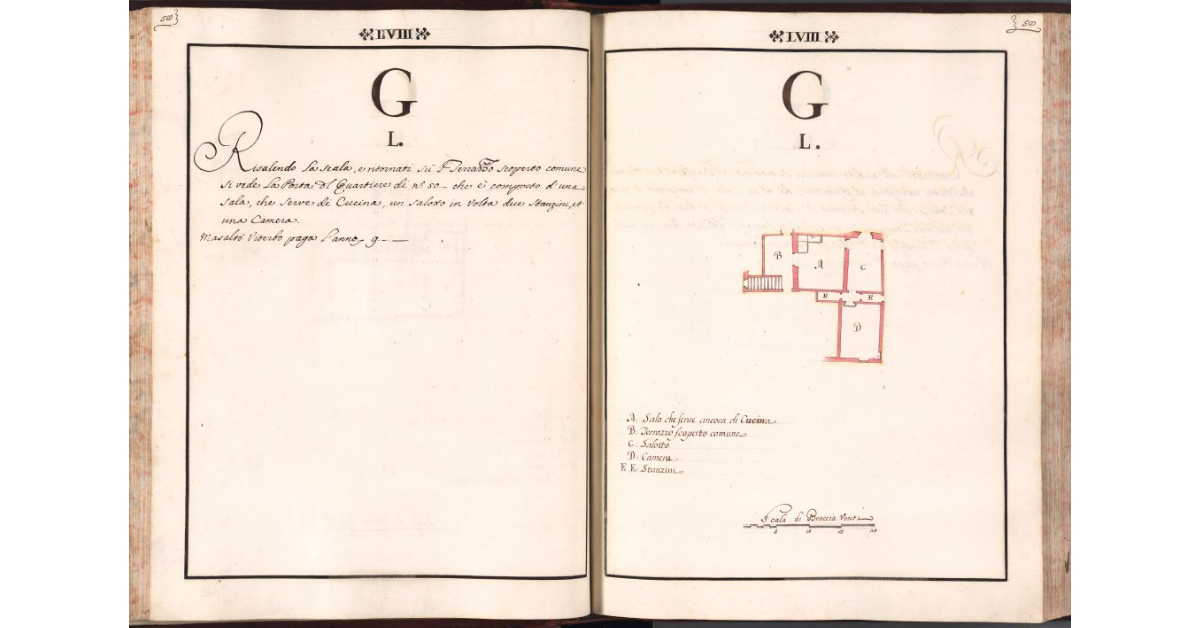 58
LVIII
G
L.
Risalendo la scala, e ritornati sù 'l Terrazzo scoperto comune
si vede la Porta dl Quartiere di nº. 50. che è composto d'una
sala, che serve di Cucina, un salotto in volta due Stanzini, et
una Camera.
Masalto Viterbo paga l'anno 9.
58
LVIII
G
L.
B
A
C
E
E
D
A. Sala che serve ancora di Cucina
B. Terrazzo scoperto comune
C. Salotto
D. Camera
E E. Stanzini
Scala di Braccia Venti
5 10 15 20